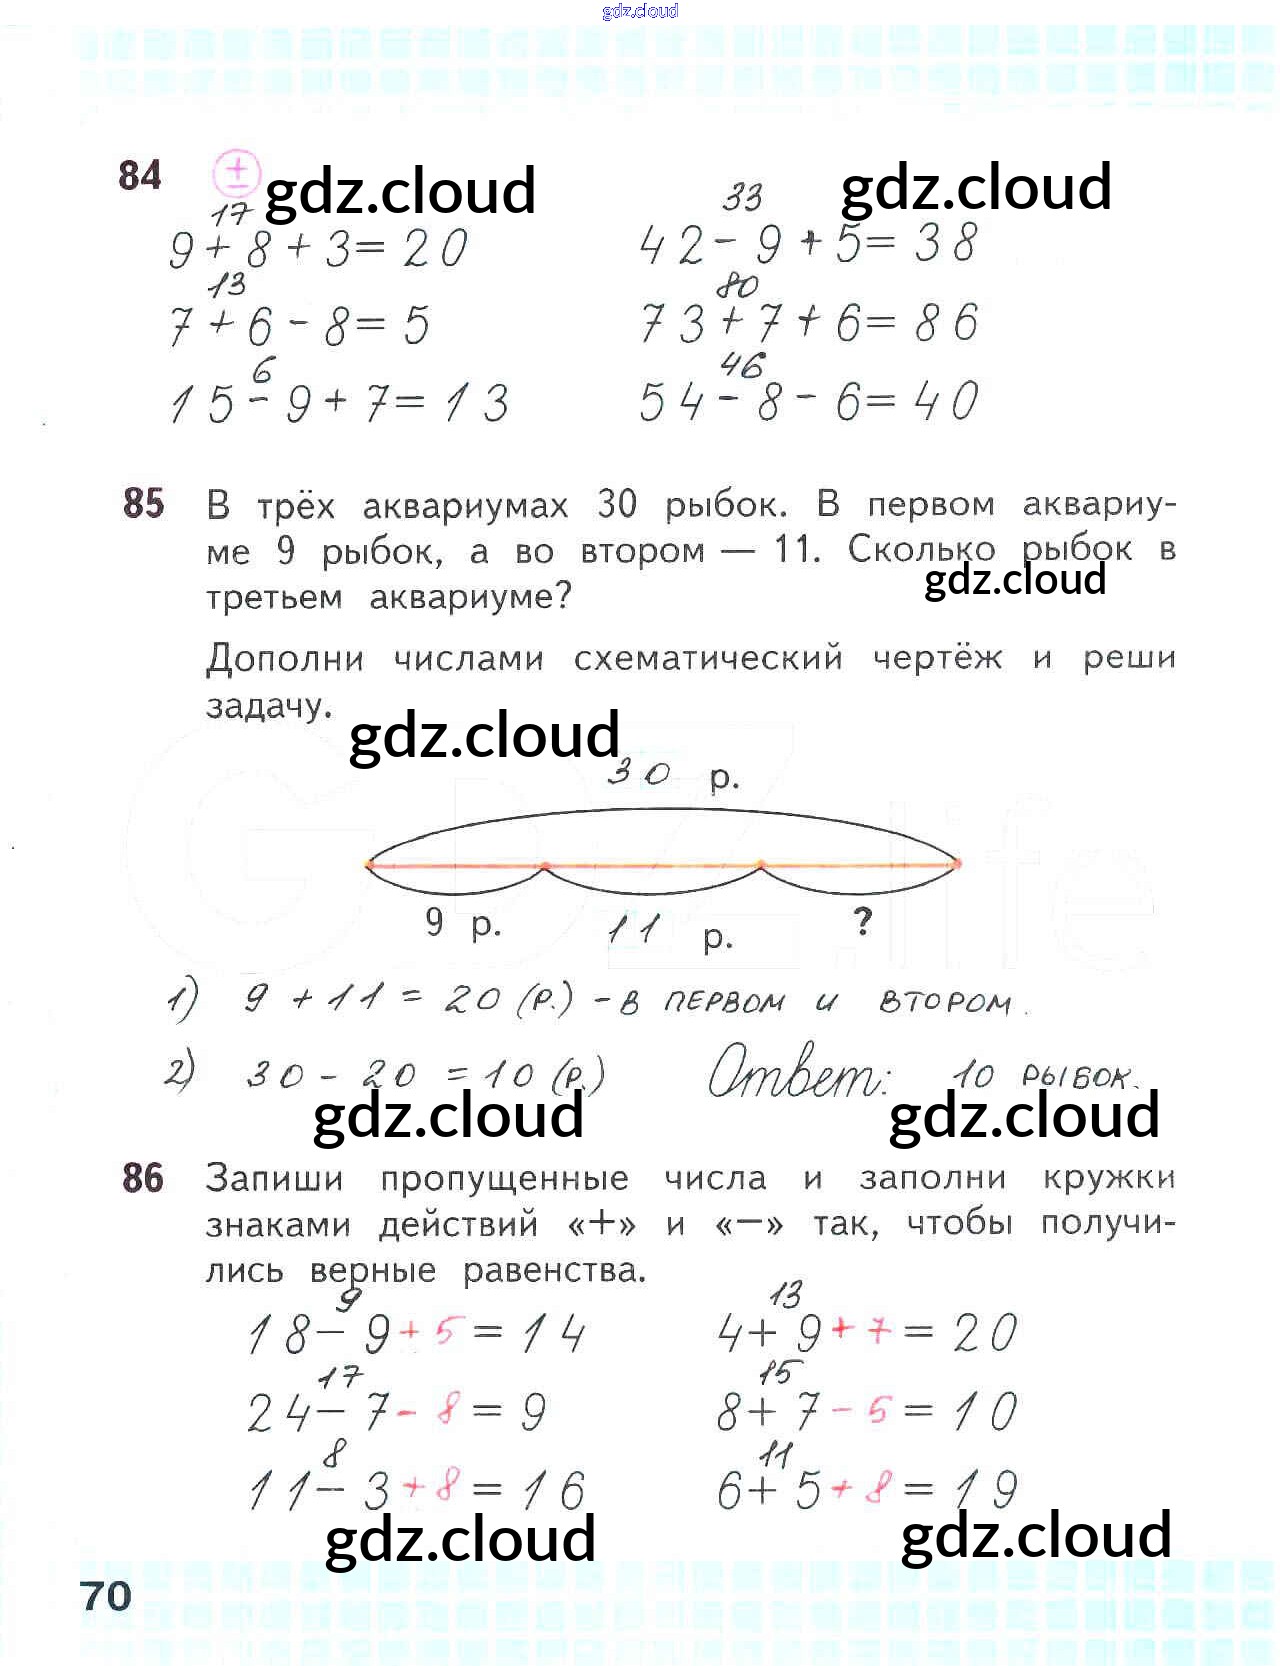 gdz.cloud
84 ± gdz.cloud gdz.cloud
17 33
9+8+3=20 42-9+5=38
13 80
7+6-8=5 73+7+6=86
6 46
15-9+7=13 54-8-6=40
85 В трёх аквариумах 30 рыбок. В первом аквариу-
ме 9 рыбок, а во втором — 11. Сколько рыбок в
gdz.cloud
третьем аквариуме?
Дополни числами схематический чертёж и реши
задачу.
gdz.cloud
30 р.
9 р. 11 р. ?
GDZ.life
1) 9+11=20 (р.) - в первом и втором.
2) 30-20=10 (р.) Ответ: 10 рыбок.
gdz.cloud gdz.cloud
86 Запиши пропущенные числа и заполни кружки
знаками действий «+» и «−» так, чтобы получи-
лись верные равенства.
9 13
18-9+5=14 4+9+7=20
17 15
24-7-8=9 8+7-5=10
8 11
11-3+8=16 6+5+8=19
gdz.cloud gdz.cloud
70